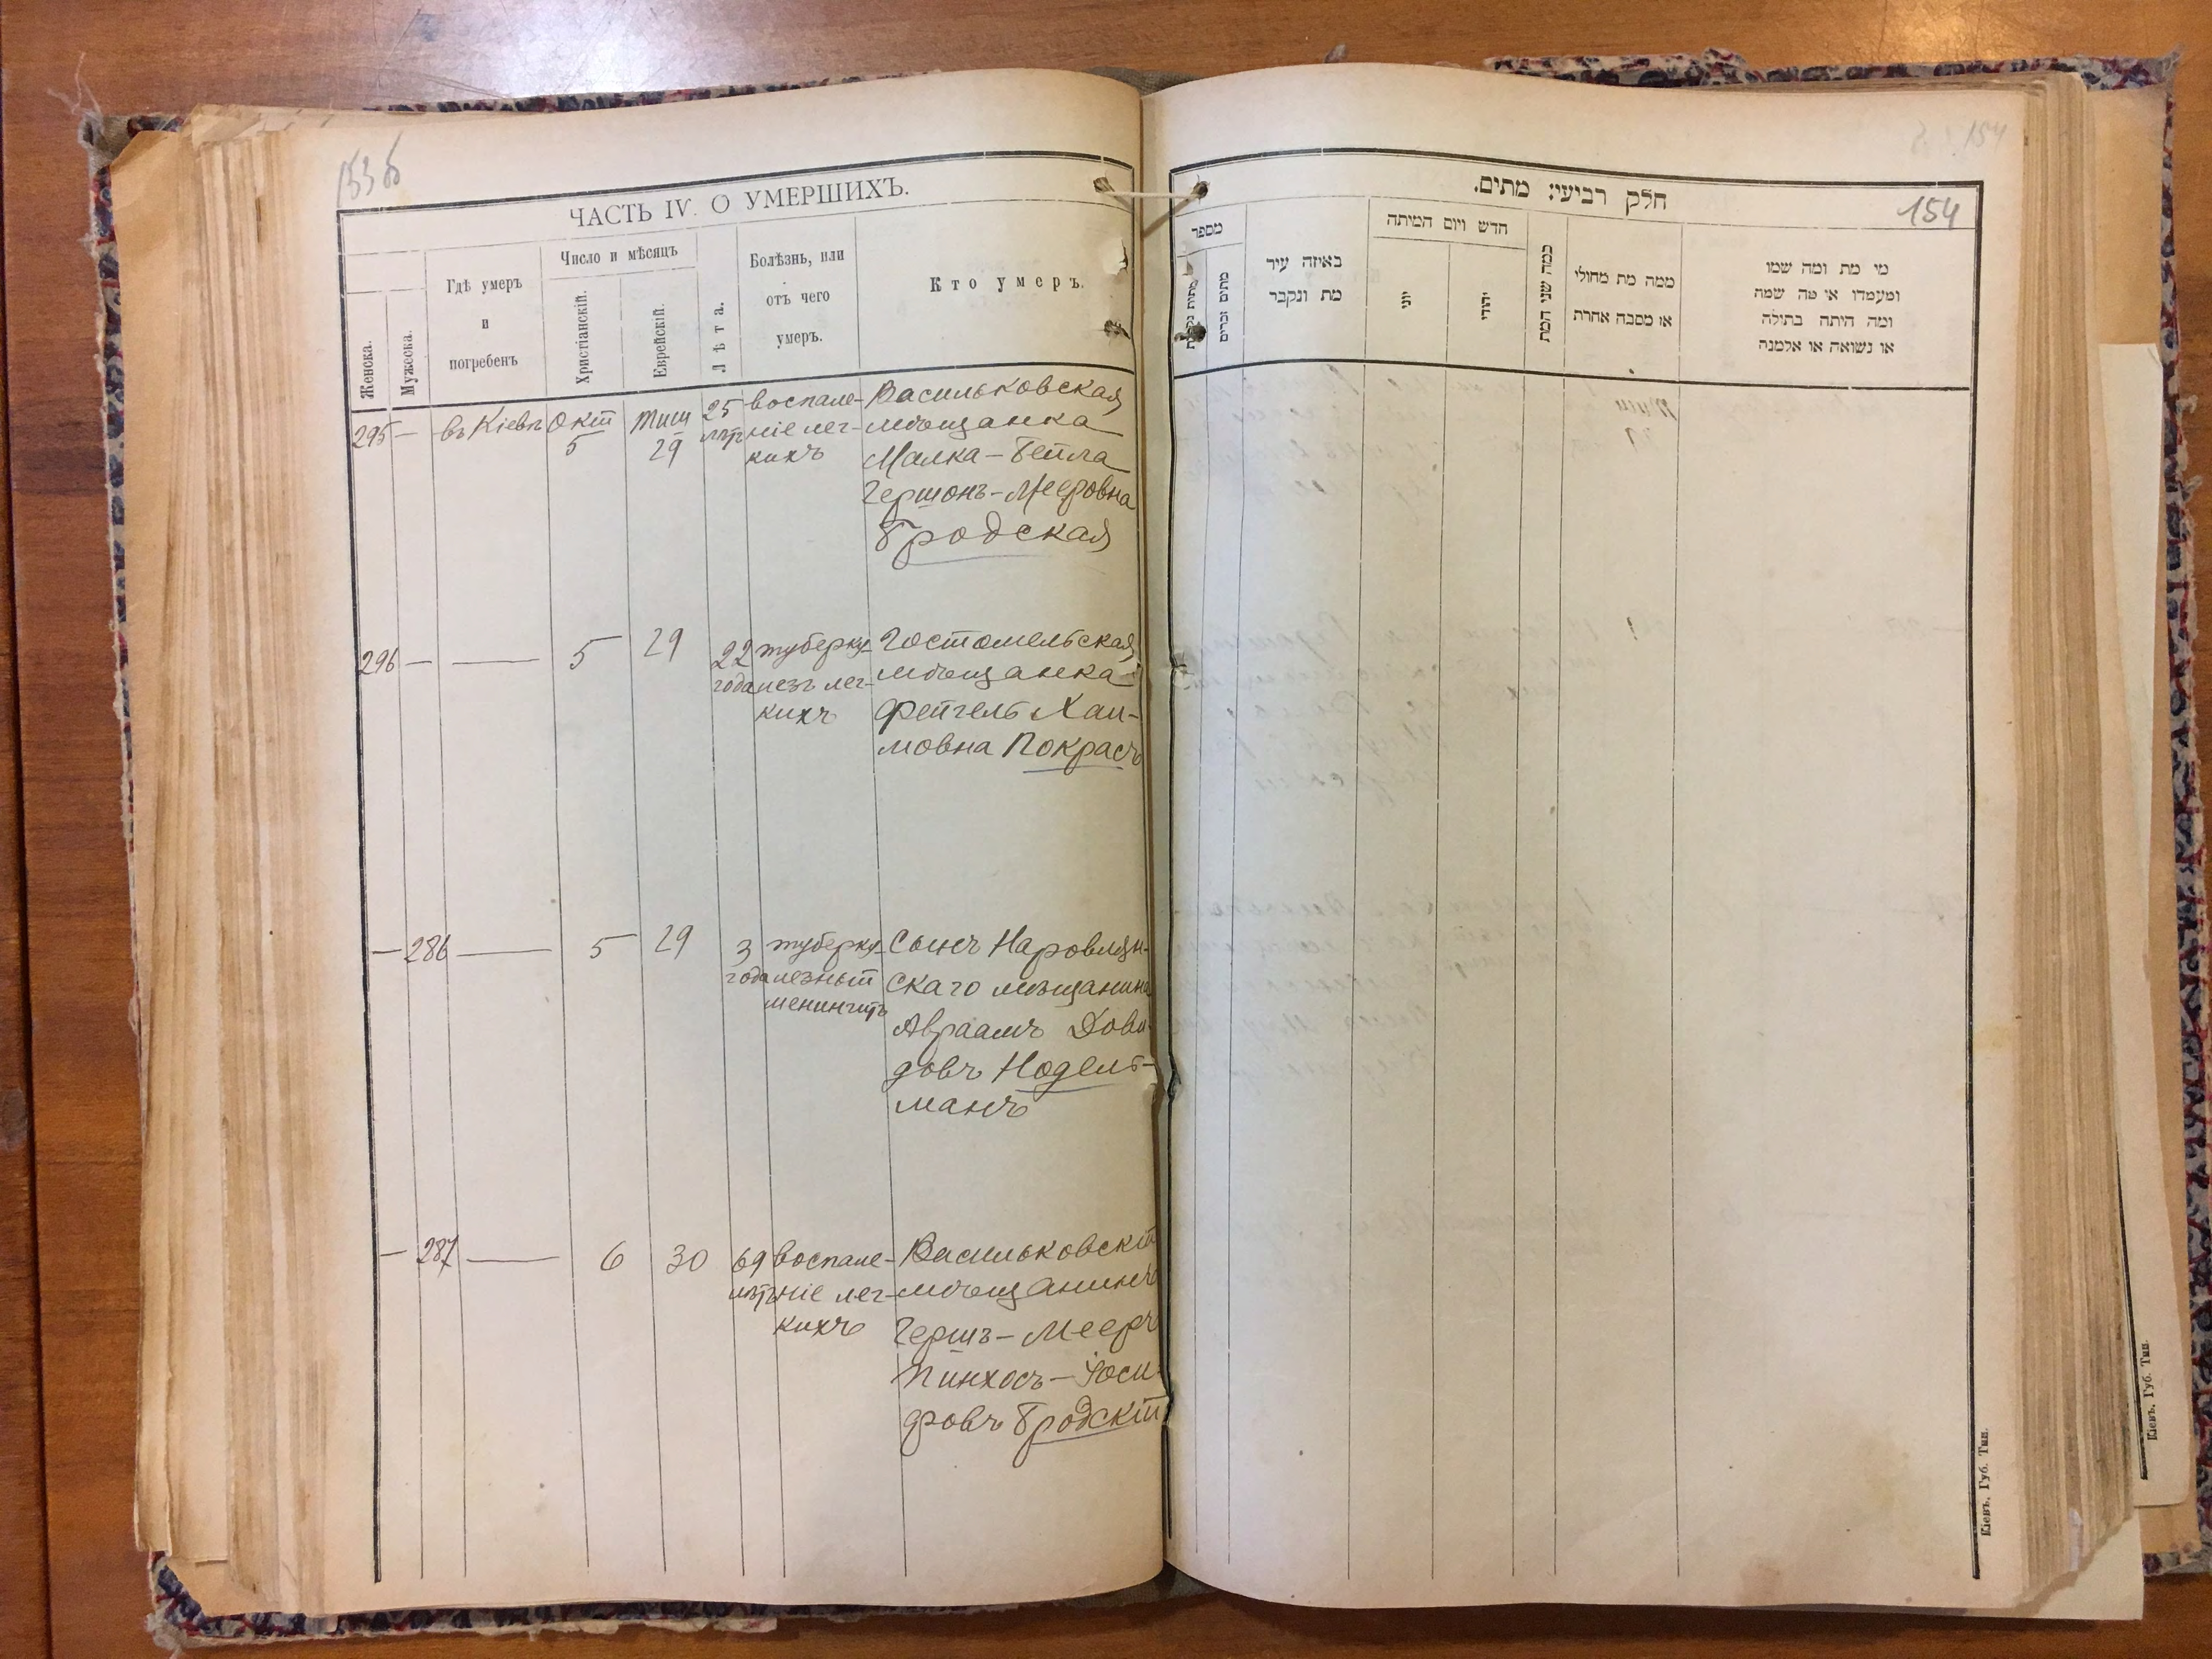 153 об
ЧАСТЬ IV. О УМЕРШИХЪ.
Женска.
Мужеска.
Гдѣ умеръ
и
погребенъ
Число и мѣсяцъ
Христіанскій.
Еврейскій.
Лѣта.
Болѣзнь, или
отъ чего
умеръ.
Кто умеръ.
295 — въ Кіевѣ Окт 5 Тиш 29 25 лѣтъ
воспале-
ніе лег-
кихъ
Васильковская
мѣщанка
Малка-Бейла
Гершонъ-Мееровна
Бродская
296 — — 5 29 22 года
туберку-
лезъ лег-
кихъ
Гостомельская
мѣщанка
Фейгель Хаи-
мовна Покрасъ
— 286 — 5 29 3 года
туберку-
лезный
менингитъ
Сынъ Наровлян-
скаго мѣщанина
Авраамъ Дови-
довъ Нодель-
манъ
— 287 — 6 30 69 лѣтъ
воспале-
ніе лег-
кихъ
Васильковскій
мѣщанинъ
Гершъ-Мееръ
Пинхосъ-Іоси-
фовъ Бродскій
154
חלק רביעי: מתים.
154
מספר
מתים זכרים
באיזה עיר
מת ונקבר
חדש ויום המיתה
יוני
יהודי
כמה שני המת
ממה מת מחולי
או מסבה אחרת
מי מת ומה שמו
ומעמדו או מה שמה
ומה היתה בתולה
או נשואה או אלמנה
Кіевъ, Губ. Тип.
Кіевъ, Губ. Тип.